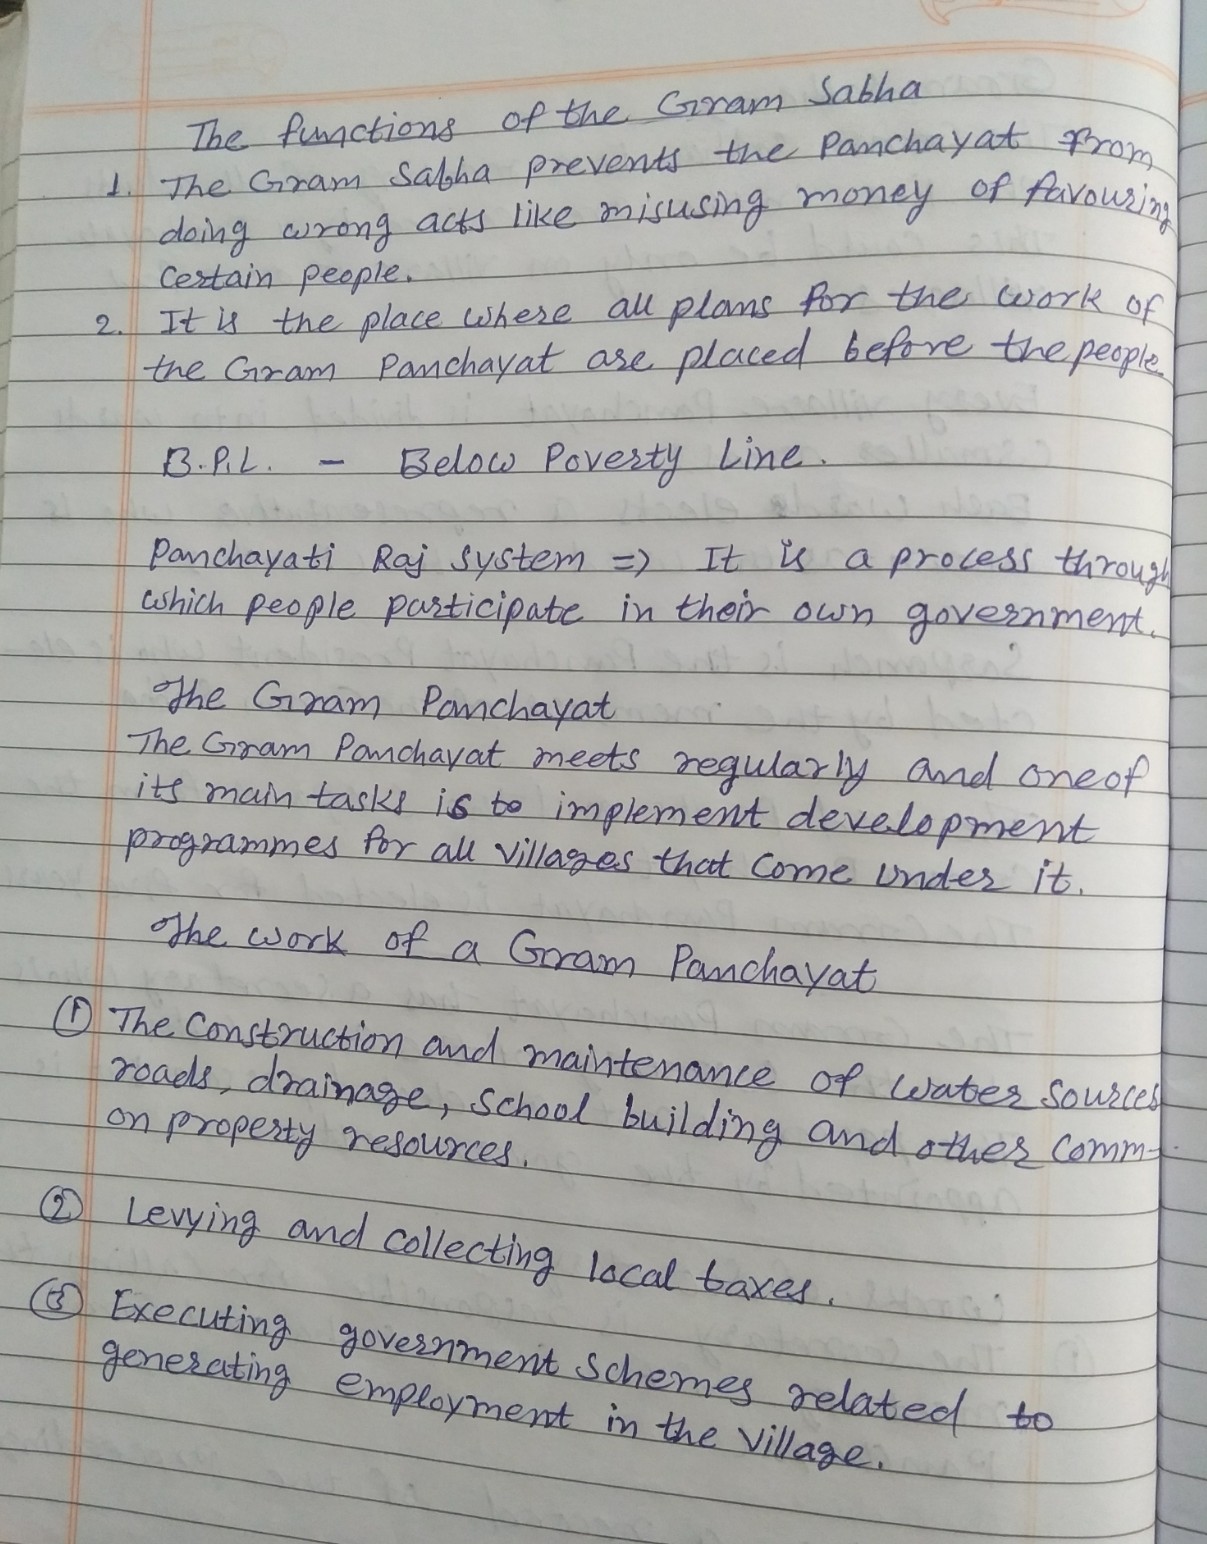 The functions of the Gram Sabha
1. The Gram Sabha prevents the Panchayat from
doing wrong acts like misusing money of favouring
certain people.
2. It is the place where all plans for the work of
the Gram Panchayat are placed before the people.
B.P.L. - Below Poverty Line.
Panchayati Raj System => It is a process through
which people participate in their own government.
The Gram Panchayat
The Gram Panchayat meets regularly and one of
its main tasks is to implement development
programmes for all villages that come under it.
The work of a Gram Panchayat
① The Construction and maintenance of water sources
roads, drainage, school building and other comm-
on property resources.
② Levying and collecting local taxes.
③ Executing government schemes related to
generating employment in the village.